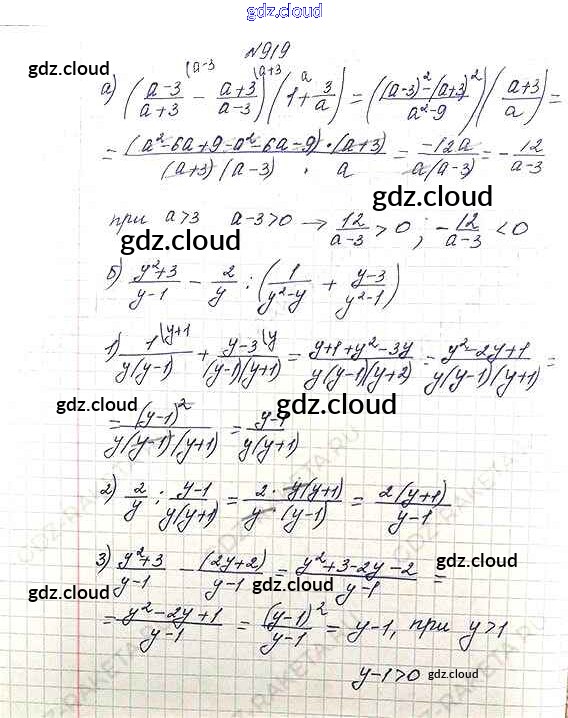 gdz.cloud
№919
gdz.cloud
gdz.cloud
а) ((a-3)/(a+3) \a-3 - (a+3)/(a-3) \a+3) (1 \a + 3/a) = (((a-3)² - (a+3)²)/(a²-9)) ((a+3)/a) =
= ((a²-6a+9-a²-6a-9) · (a+3))/((a+3)(a-3) · a) = -12a/(a(a-3)) = - 12/(a-3)
gdz.cloud
при a>3 a-3>0 → 12/(a-3) > 0 ; - 12/(a-3) < 0
gdz.cloud
б) (y²+3)/(y-1) - 2/y : (1/(y²-y) + (y-3)/(y²-1))
1) 1 \y+1/(y(y-1)) + y-3 \y/((y-1)(y+1)) = (y+1+y²-3y)/(y(y-1)(y+2)) = (y²-2y+1)/(y(y-1)(y+1)) =
gdz.cloud
gdz.cloud
= (y-1)²/(y(y-1)(y+1)) = (y-1)/(y(y+1))
2) 2/y : (y-1)/(y(y+1)) = (2 · y(y+1))/(y (y-1)) = 2(y+1)/(y-1)
gdz.cloud
3) (y²+3)/(y-1) - (2y+2)/(y-1) = (y²+3-2y-2)/(y-1) =
gdz.cloud
gdz.cloud
gdz.cloud
= (y²-2y+1)/(y-1) = (y-1)²/(y-1) = y-1, при y>1
y-1>0
gdz.cloud
GDZ-RAKETA.RU